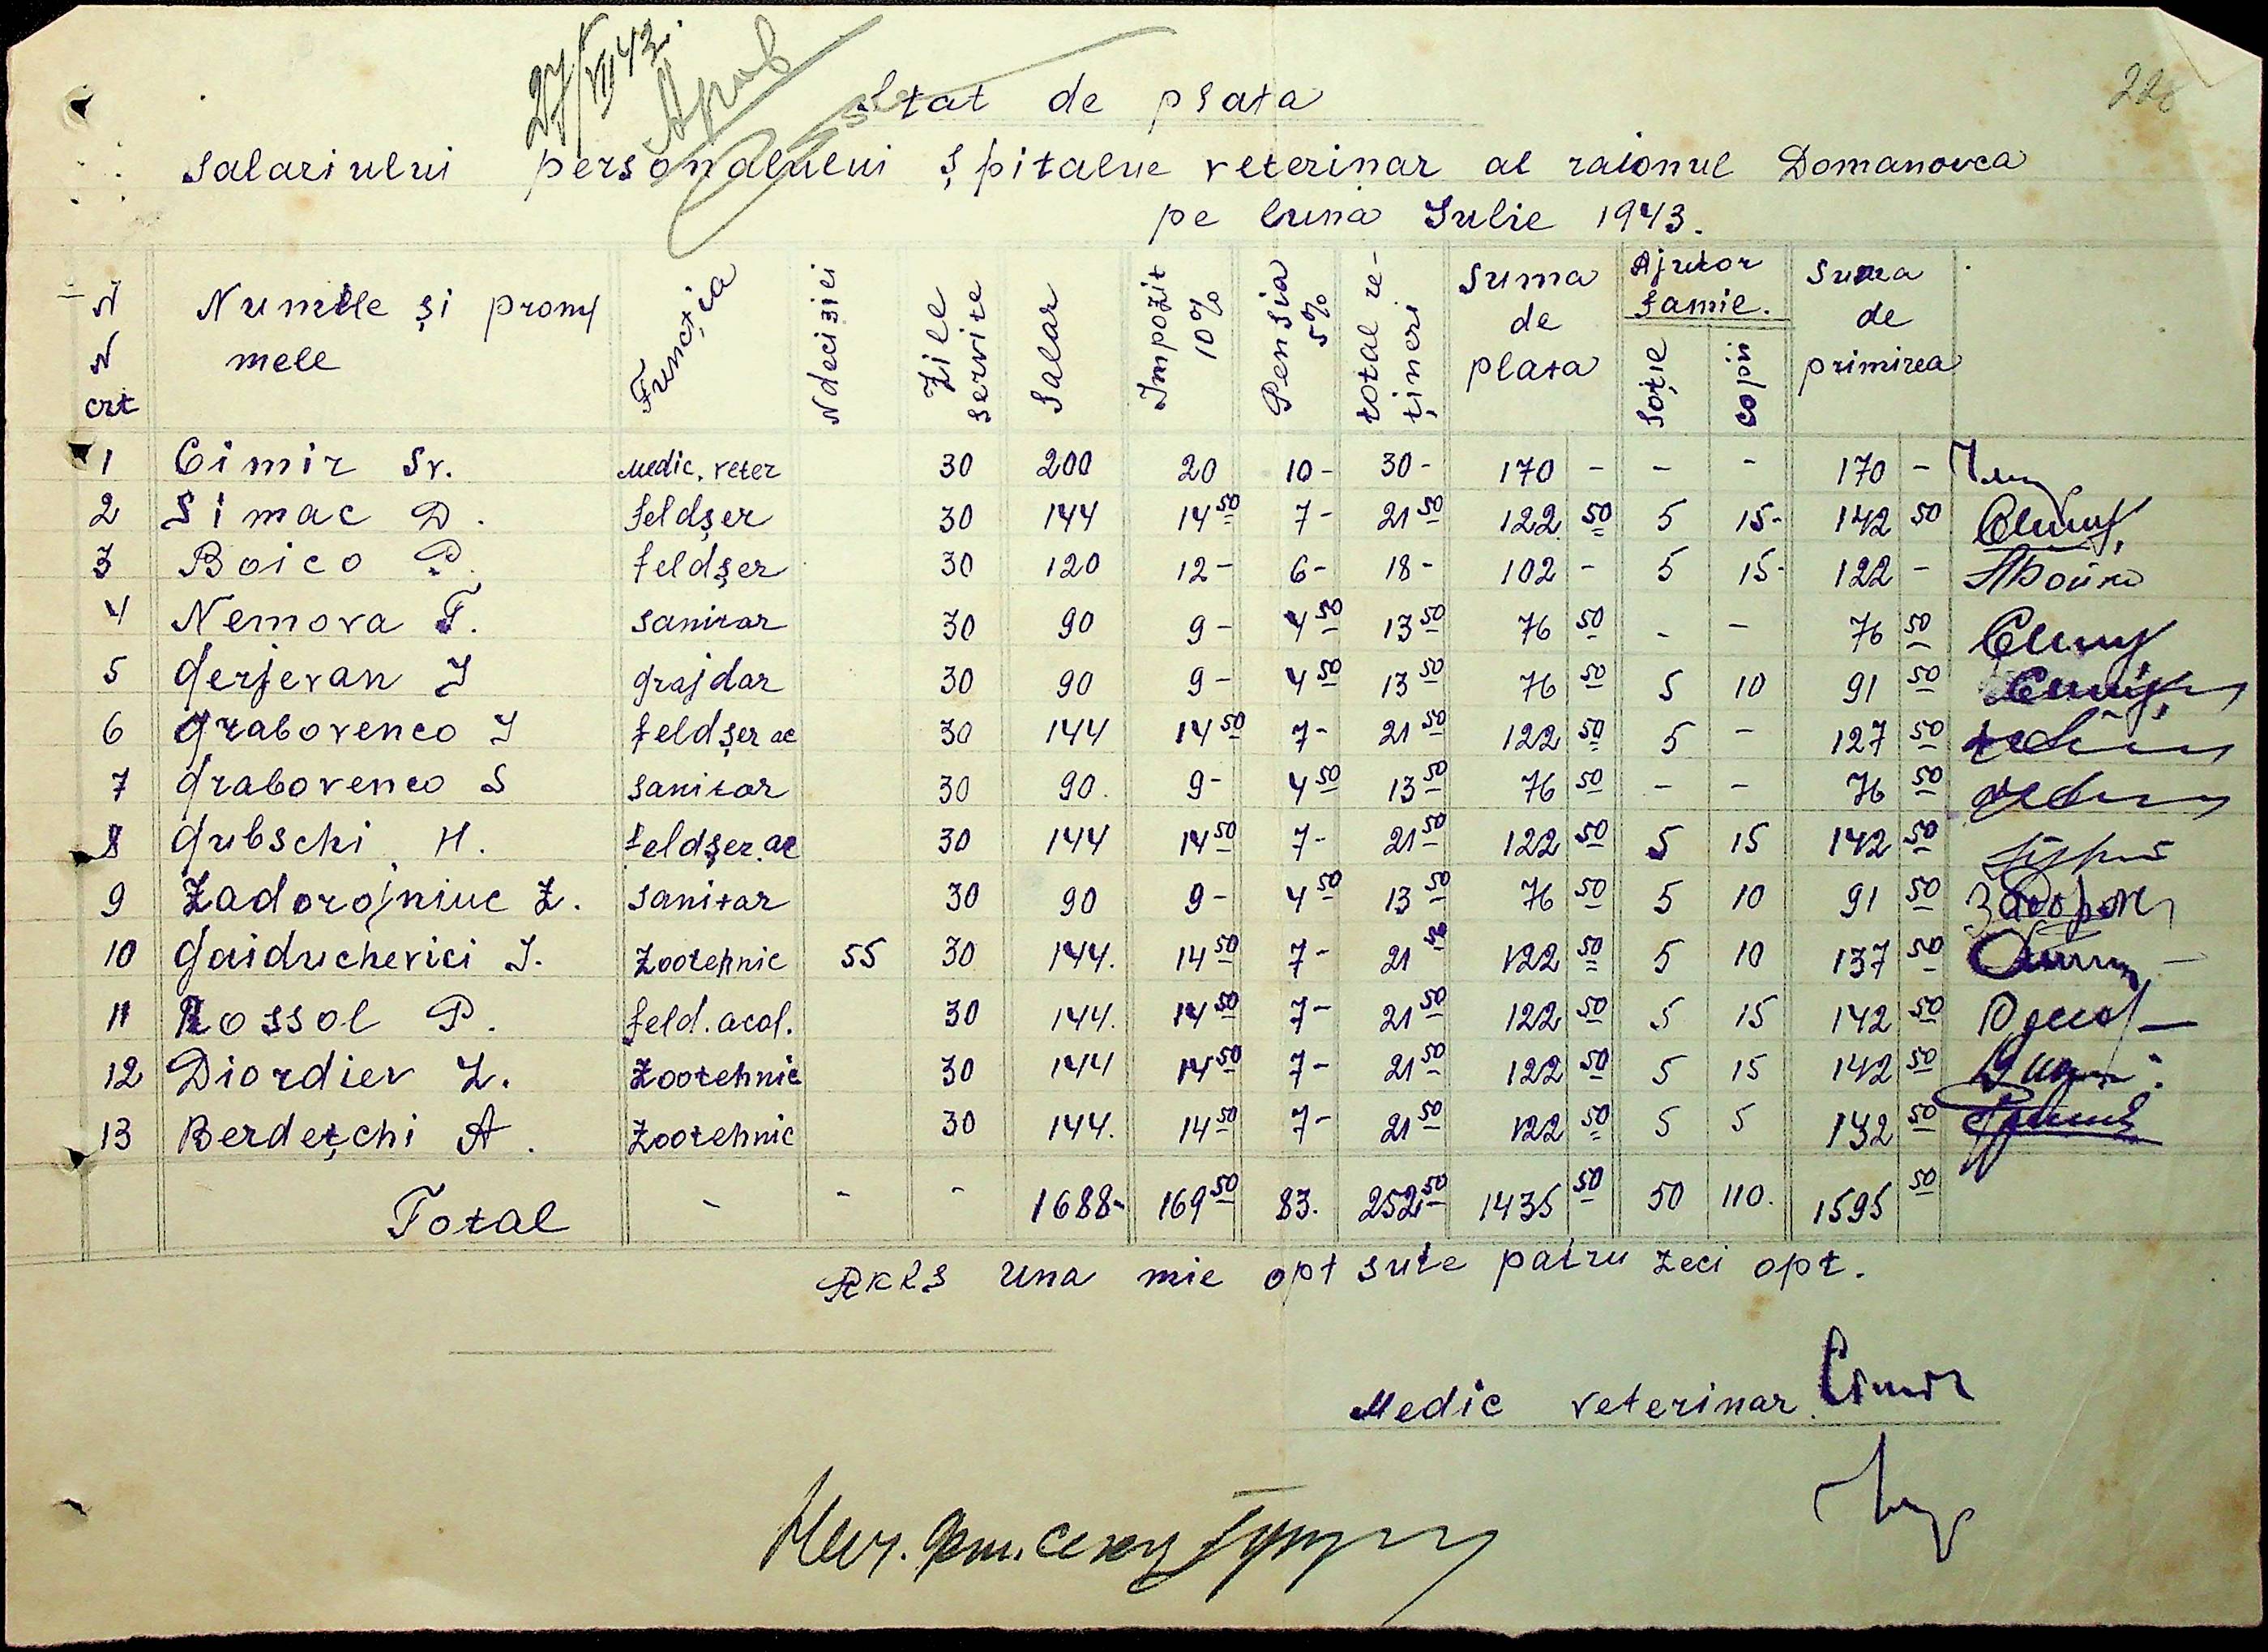 27/VII 43.
228
Stat de plata
Salariului personalului Șpitalue veterinar al raionul Domanovca
pe luna Iulie 1943.
N N crt | Numele și pronumele | Funcția | N deciziei | Zile servite | Salar | Impozit 10% | Pensia 5% | total rețineri | Suma de plata | Ajutor famil. soție | copii | Suma de primirea
1 Cimir Sv. Medic. veter 30 200 20 10- 30- 170 - - - 170 -
2 Simac D. feldșer 30 144 14 50 7- 21 50 122 50 5 15- 142 50
3 Boico P. feldșer 30 120 12- 6- 18- 102 - 5 15- 122 - Бойко
4 Nemova T. Sanitar 30 90 9- 4 50 13 50 76 50 - - 76 50
5 Gerjevan I grajdar 30 90 9- 4 50 13 50 76 50 5 10 91 50
6 Grabovenco I feldșer ac 30 144 14 50 7- 21 50 122 50 5 - 127 50
7 Grabovenco S Sanitar 30 90. 9- 4 50 13 50 76 50 - - 76 50
8 Gubschi H. feldșer. ac 30 144 14 50 7- 21 50 122 50 5 15 142 50
9 Zadorojniuc Z. Sanitar 30 90 9- 4 50 13 50 76 50 5 10 91 50
10 Gaiduchevici I. Zootehnic 55 30 144. 14 50 7- 21 50 122 50 5 10 137 50
11 Rossol P. feld. acol. 30 144. 14 50 7- 21 50 122 50 5 15 142 50
12 Diordiev Z. Zootehnic 30 144 14 50 7- 21 50 122 50 5 15 142 50
13 Berdețchi A. Zootehnic 30 144. 14 50 7- 21 50 122 50 5 5 132 50
Total - - - 1688- 169 50 83. 252 50 1435 50 50 110. 1595 50
RKKS una mie opt sute patru zeci opt.
Medic veterinar. Cimir